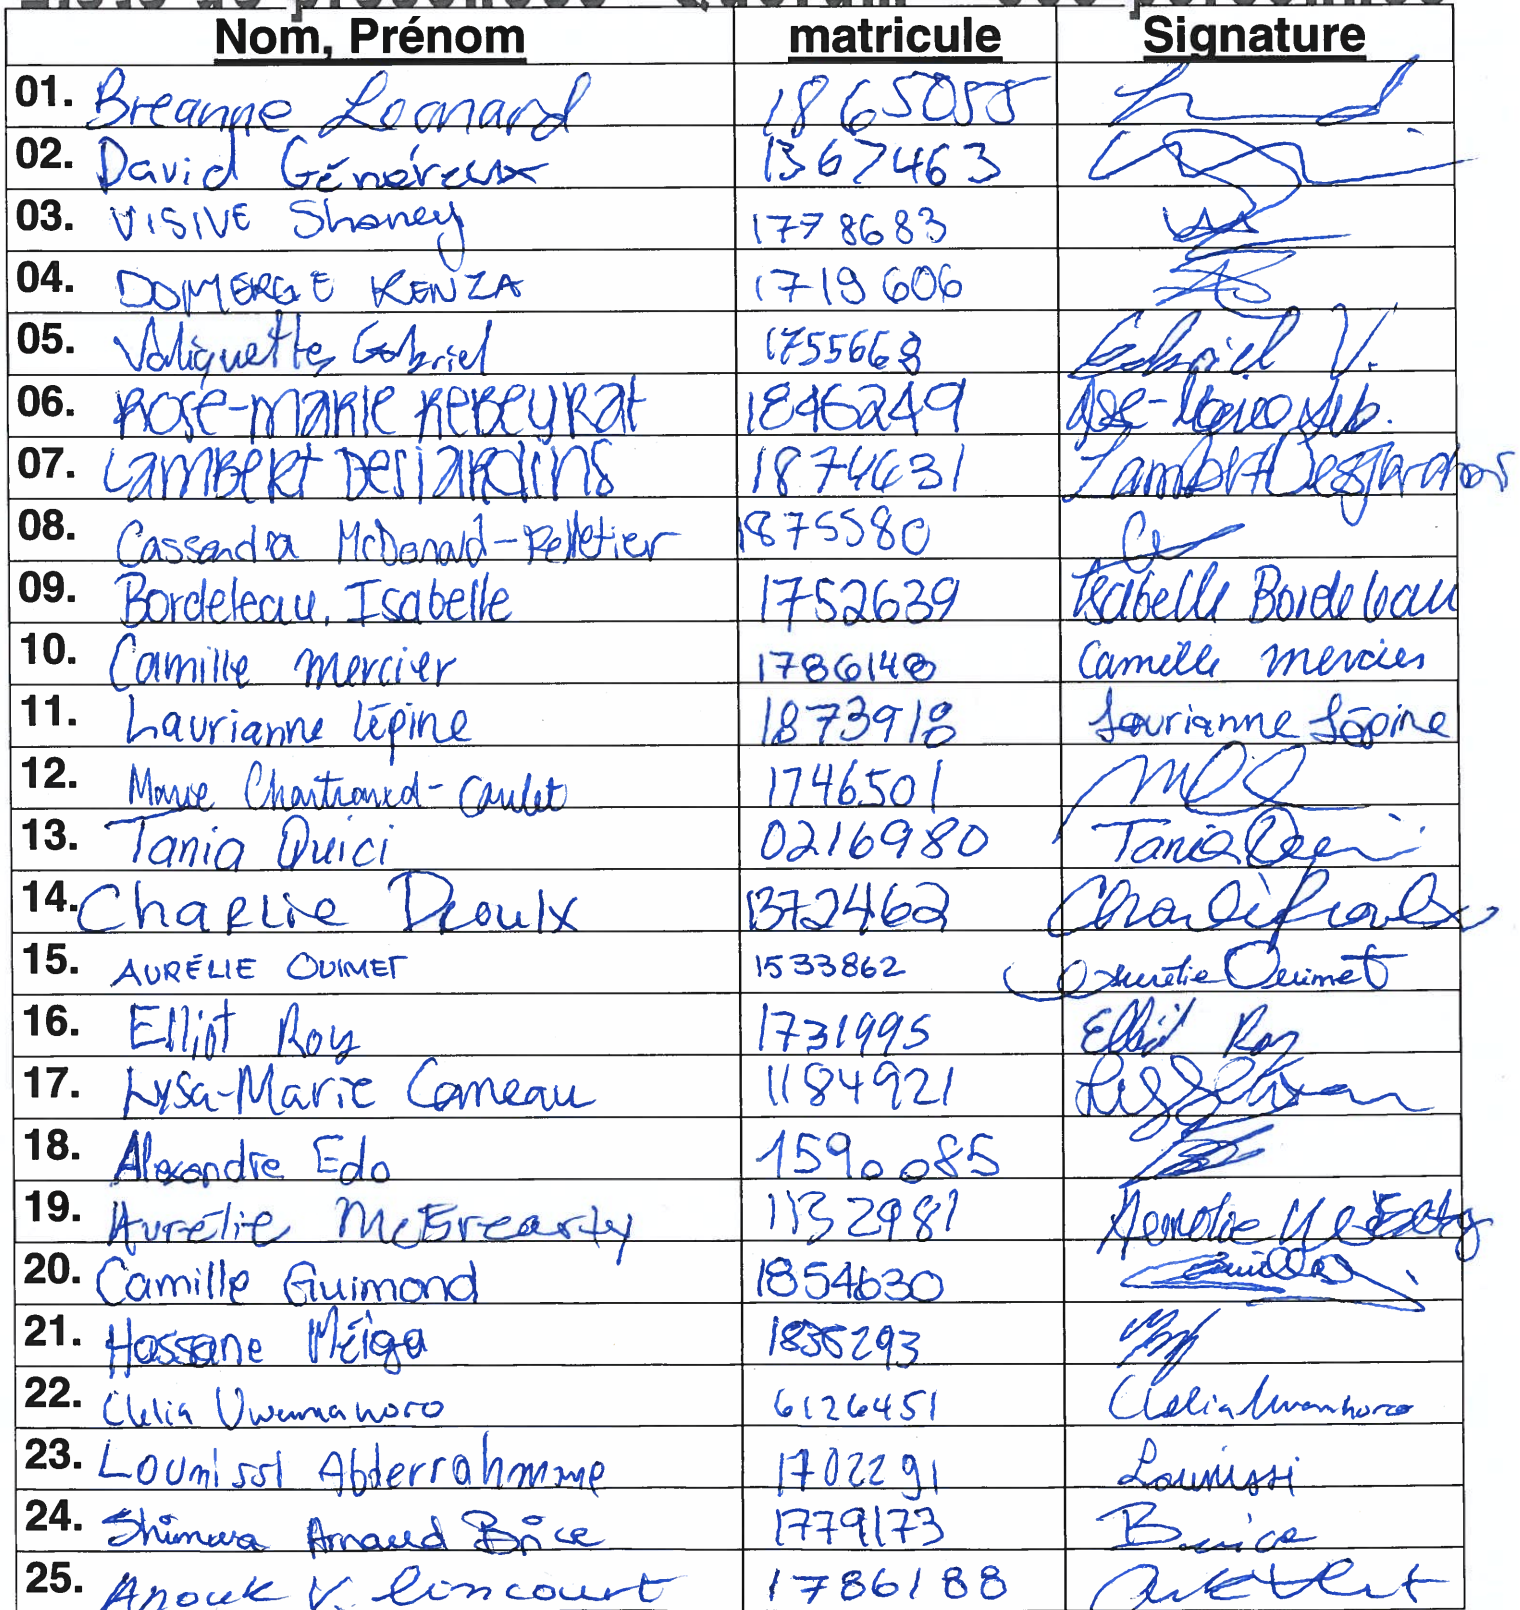 Liste de présences - Quorum - 260 personnes
Nom, Prénom matricule Signature
01. Breanne Leonard 1865055
02. David Généreux 1367463
03. VISIVE Shaney 1778683
04. DOMERGE KENZA 1719606
05. Valiquette, Gabriel 1755668 Gabriel V.
06. Rose-Marie Rebeyrat 1846249 Rose-Marie Reb.
07. Lambert Desjardins 1874631 Lambert Desjardins
08. Cassandra McDonald-Pelletier 1875580
09. Bordeleau, Isabelle 1752639 Isabelle Bordeleau
10. Camille Mercier 1786148 Camille Mercier
11. Laurianne Lépine 1873918 Laurianne Lépine
12. Marie Chartrand-Caulet 1746501
13. Tania Quici 0216980 Tania Quici
14. Charlie Proulx 1372462 Charlie Proulx
15. AURÉLIE OUIMET 1533862 Aurélie Ouimet
16. Elliot Roy 1731995 Elliot Roy
17. Lysa-Marie Comeau 1184921
18. Alexandre Edo 1590085
19. Aurélie McBrearty 1132981 Aurélie McBrearty
20. Camille Guimond 1854630
21. Hassane Méïga 1835293
22. Clelia Uwemanoro 6126451
23. Lounissi Abderrahmane 1702291 Lounissi
24. Shimwa Arnaud Brice 1779173 Brice
25. Anouk V. Lincourt 1786188